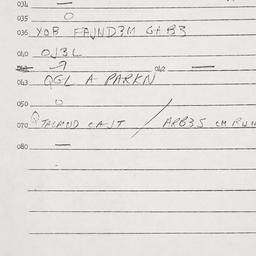 034 —
035 O
036 YOB FAJND3M GAB3
040 OJ3L
042 —
043 QGL A PARKN
050 O
070 TACMND CAJT / ARB3S CM RUN
080 —